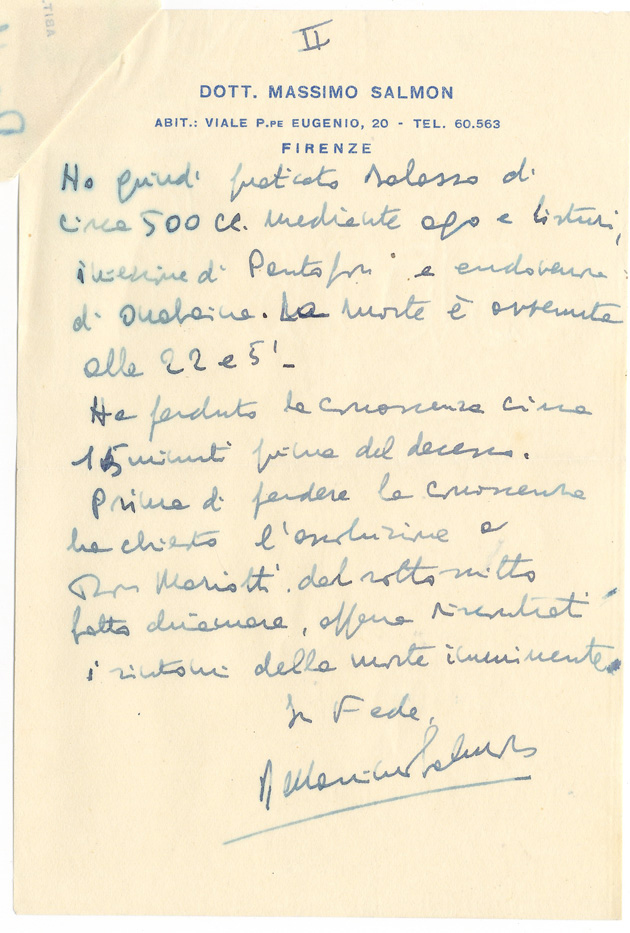 LTIBA
II
DOTT. MASSIMO SALMON
ABIT.: VIALE P.PE EUGENIO, 20 - TEL. 60.563
FIRENZE
Ho quindi praticato salasso di
circa 500 cc. mediante ago e bisturi,
iniezione di e endovenosa
di Ouabaina. La morte è avvenuta
alle 22 e 5'.
Ha perduto la conoscenza circa
15 minuti prima del decesso.
Prima di perdere la conoscenza
ha chiesto l'assoluzione a
Don Mariotti. dal sottoscritto
fatto chiamare, appena riscontrati
i sintomi della morte imminente.
In Fede,
Massimo Salmon